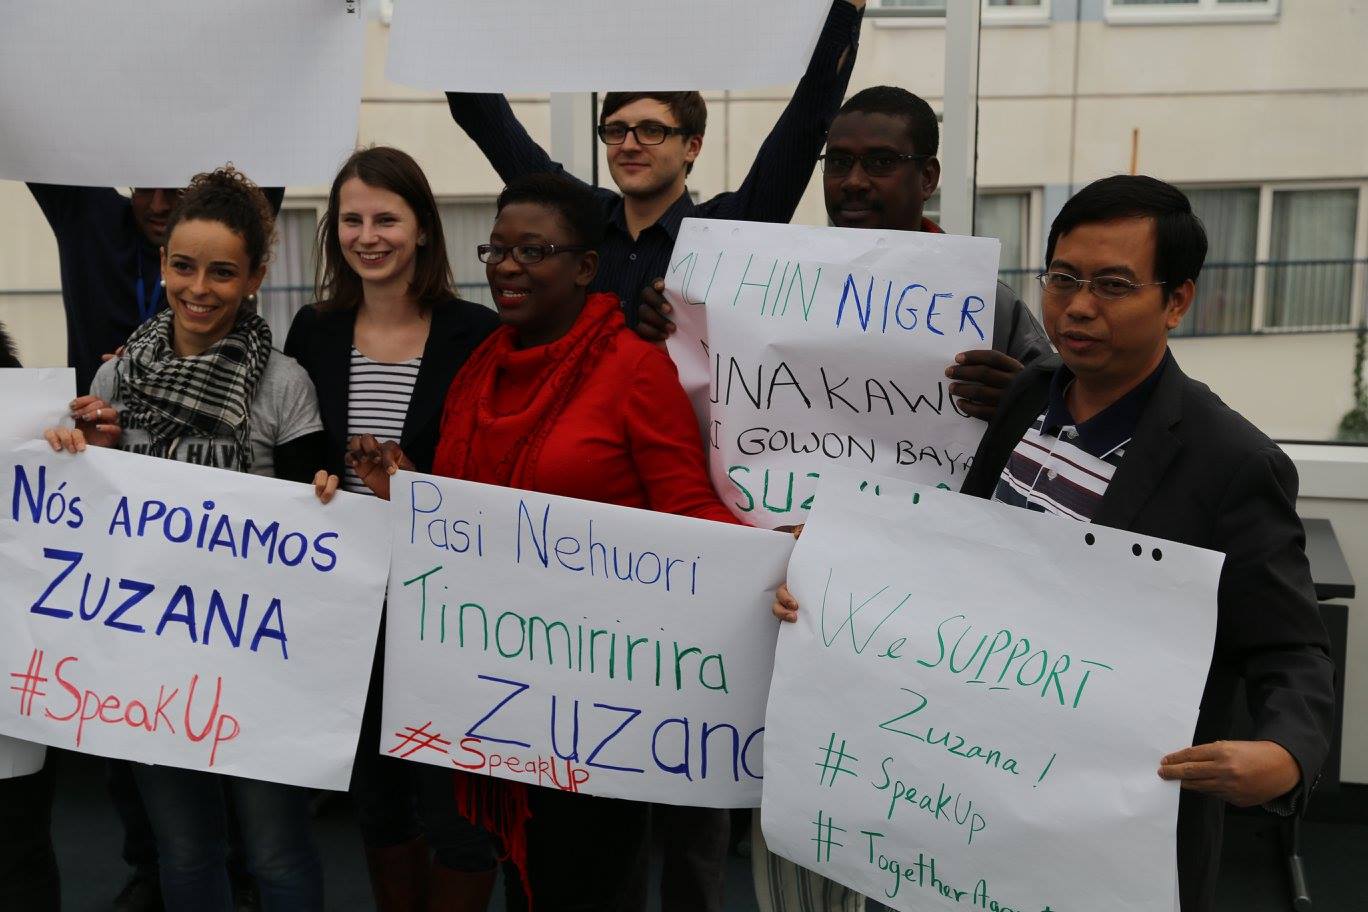 Nós APOiAMOS
ZUZANA
#SpeakUp
Pasi Nehuori
Tinomiririra
Zuzana
#SpeakUp
HIN NIGER
GOWON BAYA
We SUPPORT
Zuzana!
# SpeakUp